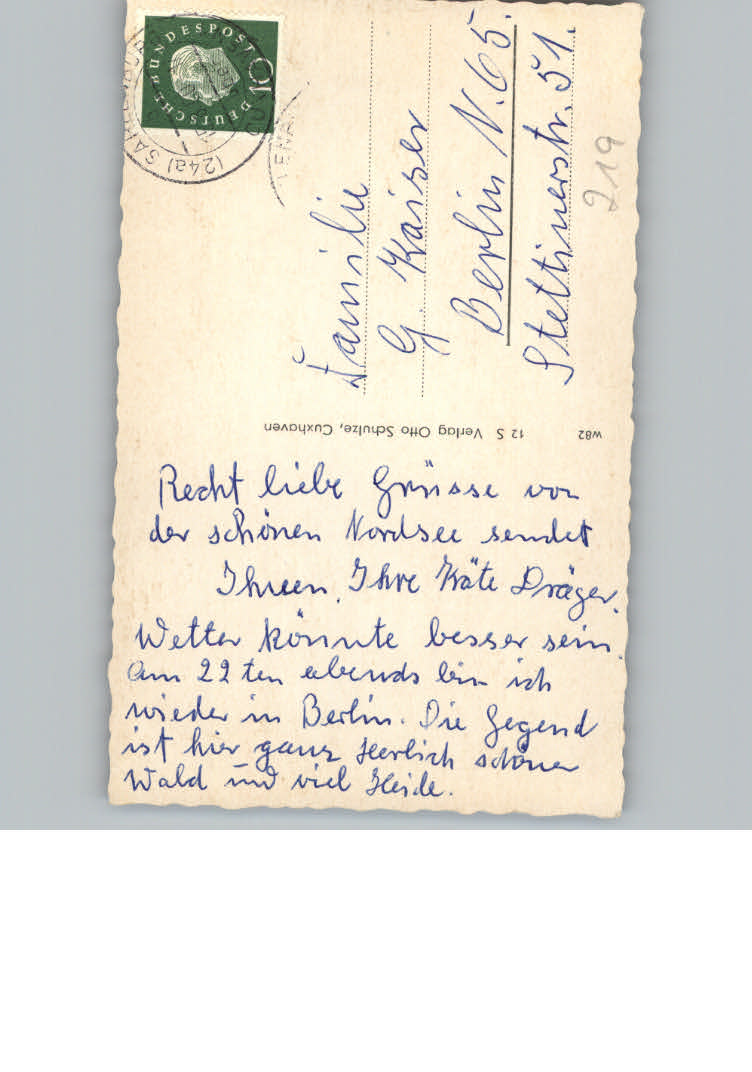 DEUTSCHE BUNDESPOST
10
(24a) SAHLENBURG
Familie
G. Kaiser
Berlin N. 65.
Stettinerstr. 51.
219
W82 12 S Verlag Otto Schulze, Cuxhaven
Recht liebe Grüsse von
der schönen Nordsee sendet
Ihnen, Ihre Käte Dräger.
Wetter könnte besser sein.
Am 22 ten abends bin ich
wieder in Berlin. Die Gegend
ist hier ganz herrlich schöner
Wald und viel Heide.